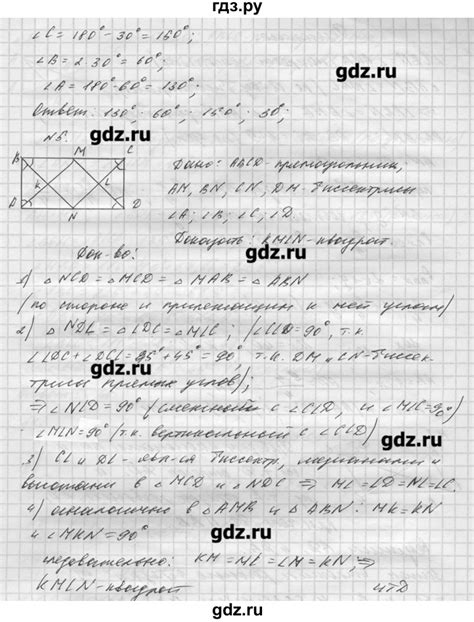 гдз.ру
∠C = 180° - 30° = 150°;
∠B = 2·30° = 60°;
∠A = 180° - 60° = 130°;
Ответ: 130°; 60°; 150°; 30°;
gdz.ru
№5.
B M C
K L
A N D
Дано: ABCD - прямоугольник;
gdz.ru
AM, BN, CN, DM - биссектрисы
∠A; ∠B; ∠C; ∠D
Доказать: KMLN - квадрат.
Док-во:
gdz.ru
1) △NCD = △MCD = △MAB = △ABN
(по стороне и прилежащим к ней углам)
gdz.ru
2) △NDL = △LDC = △MLC; (∠CLD = 90°, т.к.
∠LDC + ∠DCL = 45° + 45° = 90° т.к. DM и CN - биссек-
gdz.ru
трисы прямых углов);
⇒ ∠NLD = 90° (смежный с ∠CLD, и ∠MLC = 90°)
∠MLN = 90° (т.к. вертикальной с ∠CLD)
gdz.ru
3) CL и DL - явл-ся биссектр, медианами и
высотами в △MCD и △NDC ⇒ ML = LD = NL = LC.
4) аналогично в △AMB и △ABN: MK = KN
gdz.ru
и ∠MKN = 90°
следовательно: KM = ML = LM = KN, ⇒
KMLN - квадрат
чтд
gdz.ru